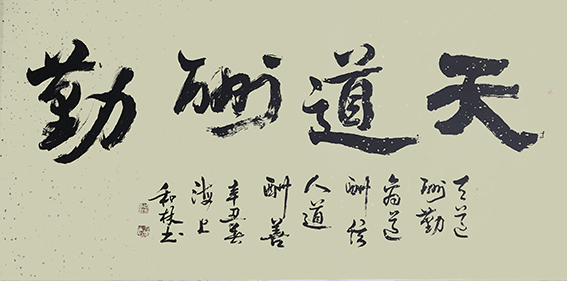 天道酬勤
天道
酬勤
商道
酬信
人道
酬善
辛丑春
海上
和林书